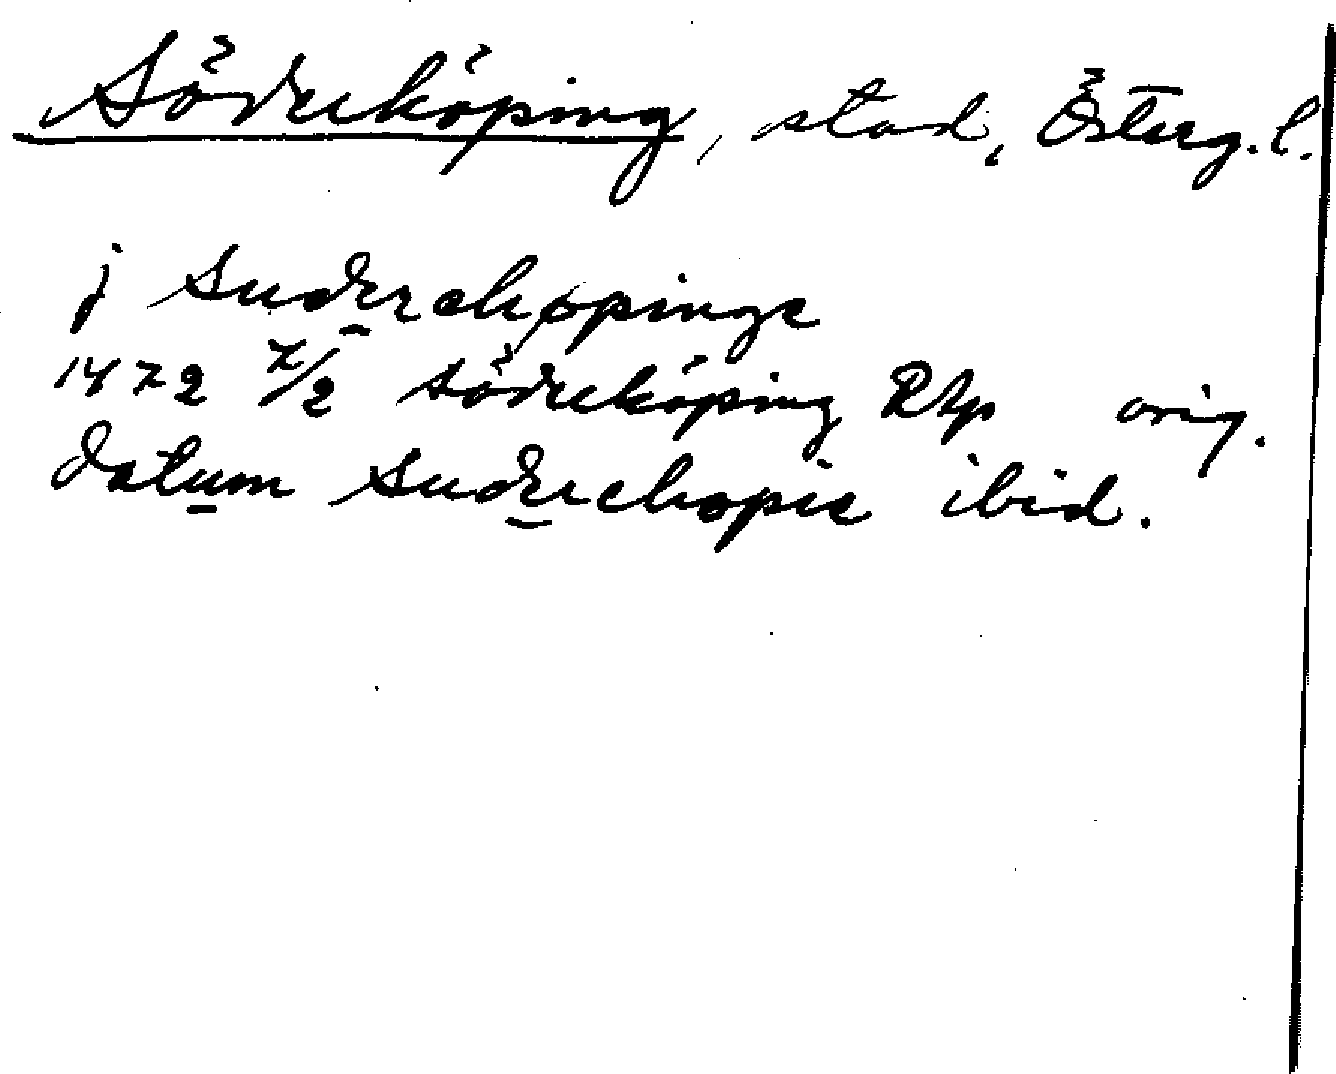 Söderköping, stad, Österg. l.
j Suderchøpinge
1472 7/2 Söderköping RAp orig.
datum Suderchopie ibid.